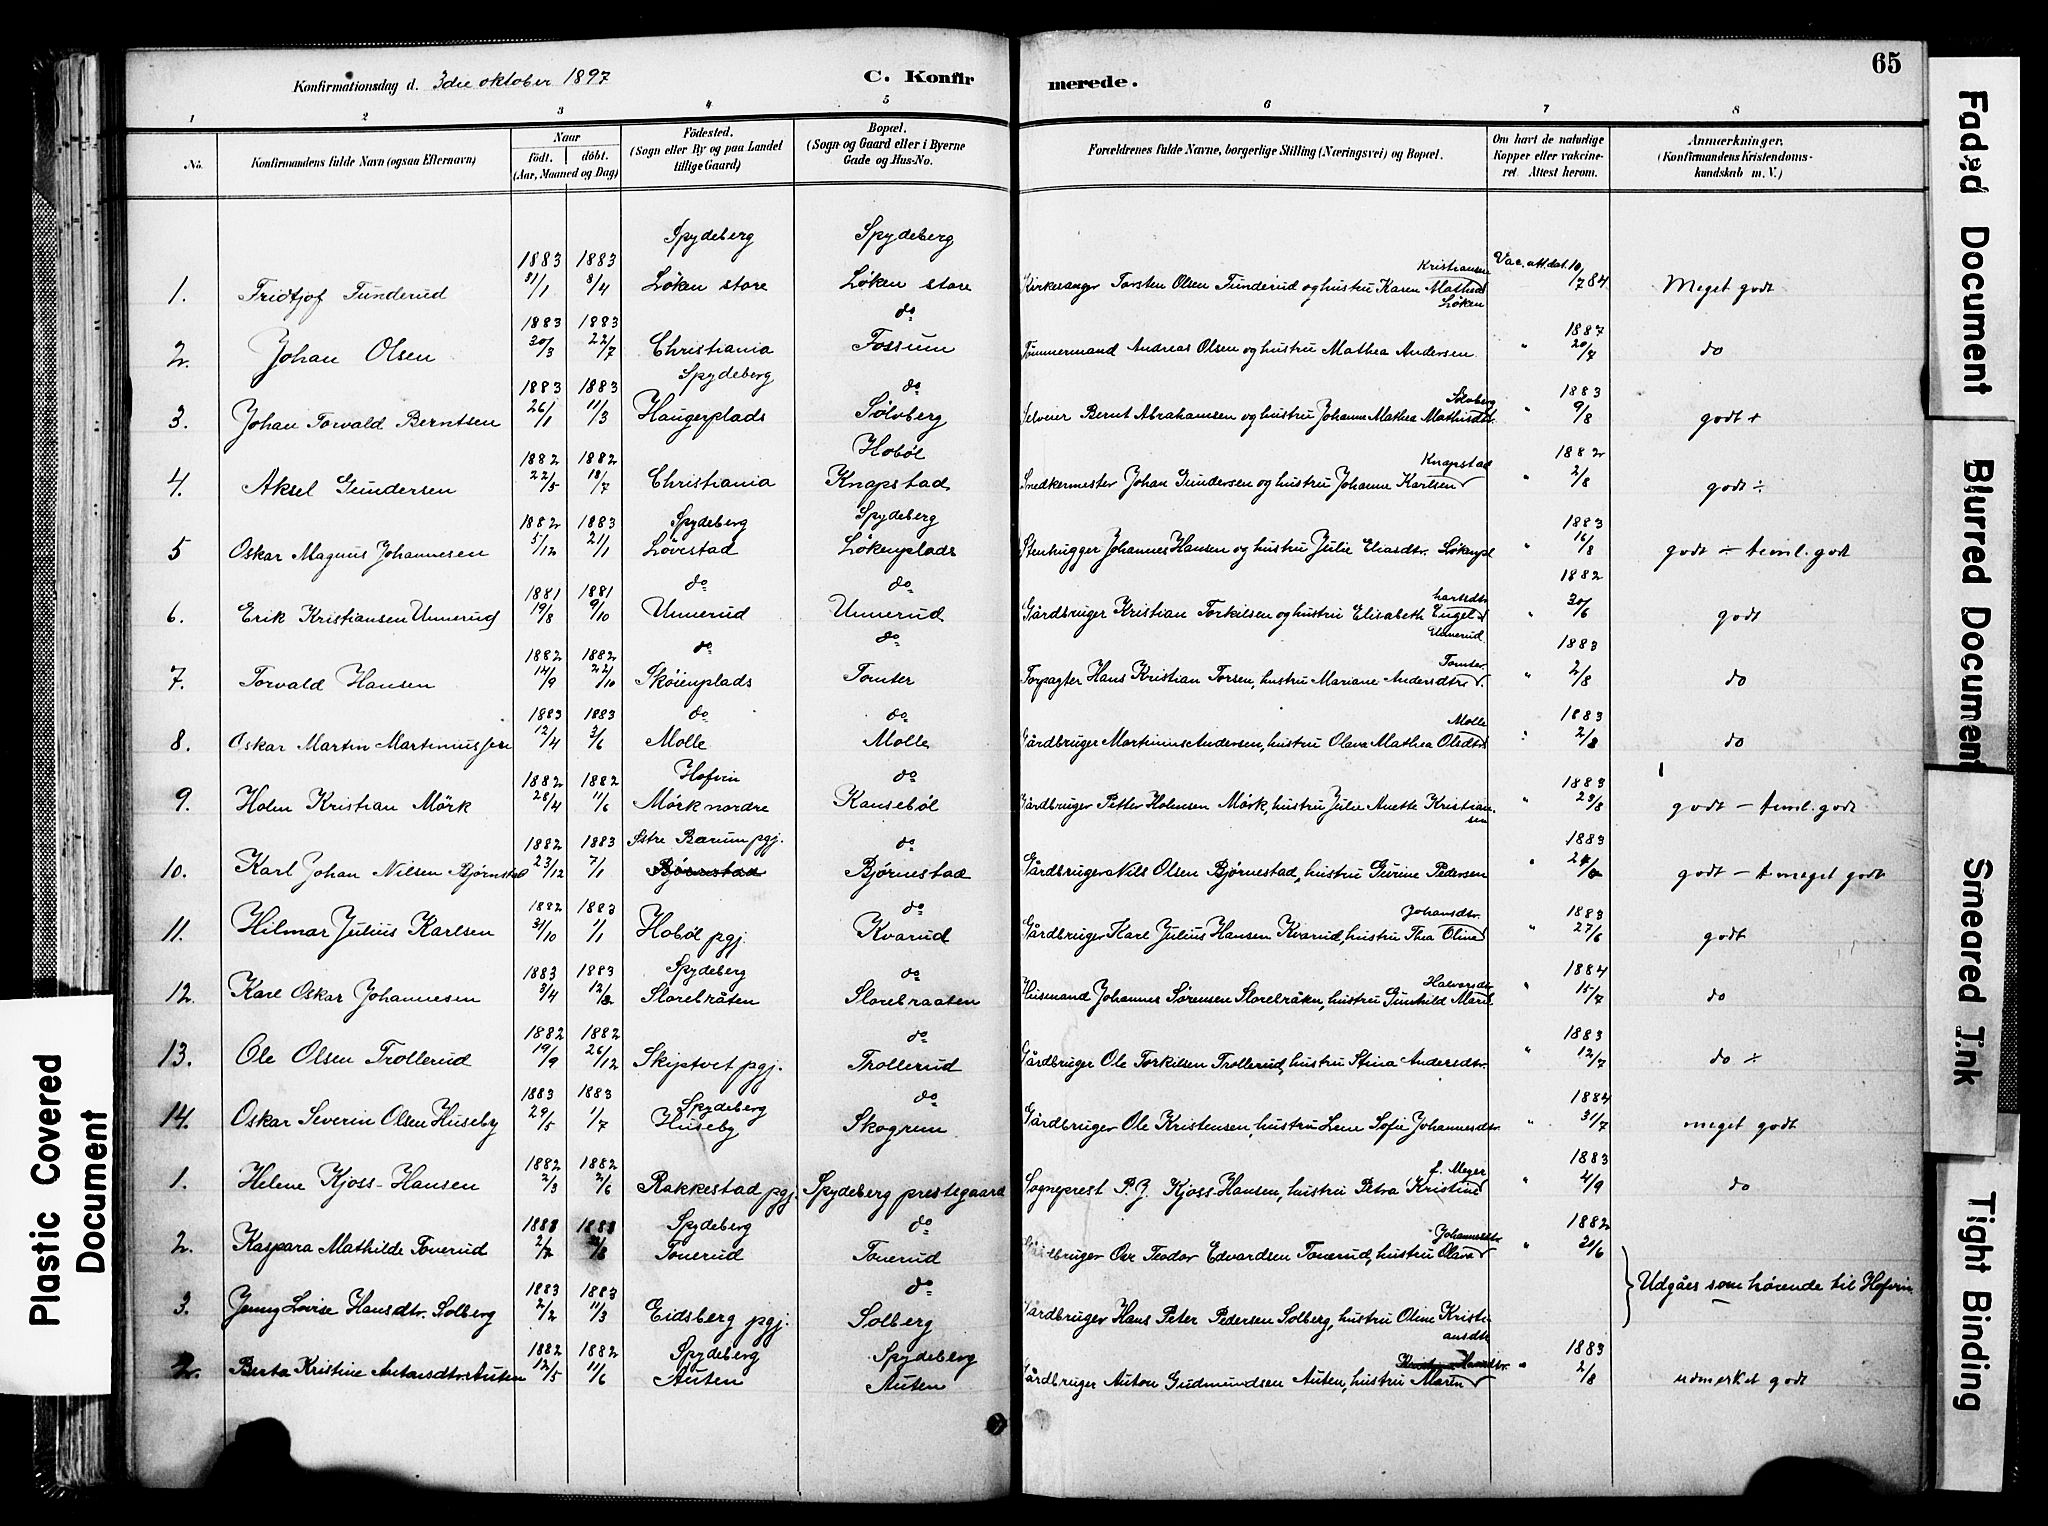 65
Konfirmationsdag d. 3die oktober 1897
C. Konfirmerede.
1 2 3 4 5 6 7 8
No.
Konfirmandens fulde Navn (ogsaa Efternavn)
Naar
födt. döbt.
(Aar, Maaned og Dag)
Födested.
(Sogn eller By og paa Landet
tillige Gaard)
Bopæl.
(Sogn og Gaard eller i Byerne
Gade og Hus-No.
Forældrenes fulde Navne, borgerlige Stilling (Næringsvei) og Bopæl.
Om havt de naturlige
Kopper eller vakcine-
ret Attest herom.
Anmærkninger.
(Konfirmandens Kristendoms-
kundskab m. V.)
Spydeberg Spydeberg
1883 1883 Kristiansen Vac. att. dat. 10/7 84
1. Fridtjof Tunderud 31/1 8/4 Løken store Løken store Kirkesanger Torsten Olsen Tunderud og hustru Karen Mathea Løken Meget godt
1883 1883 do 1887
2. Johan Olsen 30/3 22/7 Christiania Fossum Tømmermand Andreas Olsen og hustru Mathea Andersen " 20/7 do
1883 1883 Spydeberg do Sølvberg 1883
3. Johan Torvald Berntsen 26/1 11/3 Haugerplads Sølvberg Selveier Bernt Abrahamsen og hustru Johanne Mathea Mathisdtr. " 9/8 godt +
1882 1882 Hobøl Knapstad 1882
4. Aksel Gundersen 22/5 18/7 Christiania Knapstad Snedkermester Johan Gundersen og hustru Johanne Karlsen " 2/8 godt ÷
1882 1883 Spydeberg Spydeberg 1883
5 Oskar Magnus Johannesen 5/12 21/1 Løvestad Løkenplads Stenhugger Johannes Hansen og hustru Julie Eliasdtr. Løkenpl " 16/8 godt ÷ teml. godt
1881 1881 do do hartsdtr 1882
6. Erik Kristiansen Unnerud 19/8 9/10 Unnerud Unnerud Gårdbruger Kristian Torkilsen og hustru Elisabeth Engel Unnerud " 30/6 godt
1882 1882 do do Tomter 1883
7. Torvald Hansen 14/9 22/10 Skøienplads Tomter Forpagter Hans Kristian Torsen, hustru Mariane Andersdtr. " 2/8 do
1883 1883 do do Molle 1883
8. Oskar Martin Martinussen 12/4 3/6 Molle Molle Gårdbruger Martinus Andersen, hustru Olava Mathea Olsdtr " 2/8 do
1882 1882 Hofvin do 1883
9. Holm Kristian Mörk 28/4 11/6 Mörk nordre Kansebøl Gårdbruger Petter Holmsen Mørk, hustru Julie Anette Kristiansen " 23/8 godt - teml. godt
1882 1883 Østre Bærum pgj. do 1883
10. Karl Johan Nilsen Bjørnstad 23/12 7/1 Bjørnestad Bjørnestad Gårdbruger Nils Olsen Bjørnestad, hustru Gurine Pedersen " godt - t meget godt
1882 1883 do Johansdtr. 1883
11. Hilmar Julius Karlsen 31/10 1/1 Hobøl pgj. Kvarud Gårdbruger Karl Julius Hansen Kvarud, hustru Thea Olina " 27/6 godt
1883 1883 Spydeberg do Halvorsdtr 1884
12. Karl Oskar Johannesen 3/4 12/8 Storebråten Storebraaten Husmand Johannes Sørensen Storebråten, hustru Gunhild Marie " 15/7 do
1882 1882 do 1883
13. Ole Olsen Trollerud 19/9 26/12 Skiptvet pgj. Trollerud Gårdbruger Ole Torkilsen Trollerud, hustru Stina Andersdtr. " 12/7 do ÷
1883 1883 Spydeberg do 1884
14. Oskar Severin Olsen Huseby 29/5 1/7 Huseby Skogrum Gårdbruger Ole Kristensen, hustru Lene Sofie Johannesdtr. " 31/7 meget godt
1882 1882 f. Meyer 1883
1. Helene Kjoss-Hansen 2/3 2/6 Rakkestad pgj. Spydeberg prestegaard Sogneprest P. J. Kjoss-Hansen, hustru Petra Kristine " 4/9 do
Spydeberg do Johannesdtr 1882
2. Kaspara Mathilde Tonerud Tonerud Tonerud Gårdbruger Teodor Edvardsen Tonerud, hustru Olava "
1883 1883 do
3. Jenny Lovise Hansdtr. Solberg 2/2 11/3 Eidsberg pgj. Solberg Gårdbruger Hans Peter Pedersen Solberg, hustru Oline Kristiansdtr
} Udgåes som hørende til Hofvin
1882 1882 Spydeberg Spydeberg 1883
2. Berta Kristine Antonsdtr. Auten 12/5 11/6 Auten Auten Gårdbruger Anton Gudmundsen Auten, hustru Maren " 2/8 udmerket godt
Plastic Covered
Document
Faded Document
Blurred Document
Smeared Ink
Tight Binding